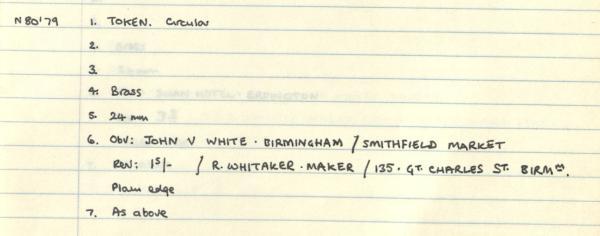 N80'79 1. TOKEN. Circular
2.
3.
4. Brass
5. 24 mm
6. Obv: JOHN V WHITE · BIRMINGHAM / SMITHFIELD MARKET
Rev: 1s/- / R. WHITAKER · MAKER / 135 · GT. CHARLES ST. BIRMm.
Plain edge
7. As above